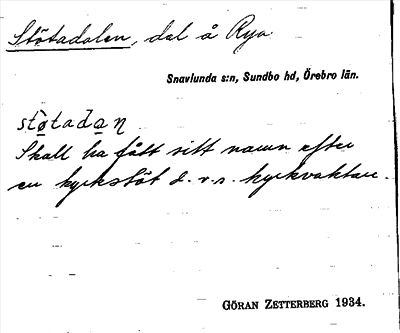 Stötadalen, dal å Rya.
Snavlunda s:n, Sundbo hd, Örebro län.
stø̀tadan
Skall ha fått sitt namn efter
en kyrkstöt d.v.s. kyrkvaktare.
GÖRAN ZETTERBERG 1934.